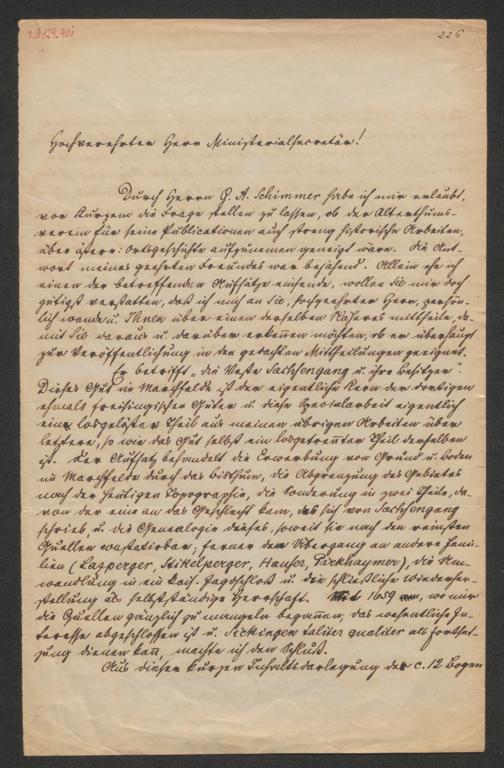 226
Hochverehrter Herr Ministerialsecretär!
Durch Herrn G. A. Schimmer habe ich mir erlaubt,
vor Kurzem die Frage stellen zu lassen, ob der Alterthums-
verein für seine Publicationen auch streng historische Arbeiten,
über österr: Ortsgeschichte aufzunemen geneigt wäre. Die Ant-
wort meines geehrten Freundes war bejahend. Allein ehe ich
einen der betreffenden Aufsätze einsende, wollen Sie mir doch
gütigst verstatten, daß ich mich an Sie, hochgeehrter Herr, persön-
lich wende u. Ihnen über einen derselben Näheres mittheile, da-
mit Sie daraus u. darüber erkennen möchten, ob er überhaupt
zur Veröffentlichung in den gedachten Mittheilungen geeignet.
Er betrifft „die Veste Sachsengang u. ihre Besitzer".
Dieses Gut im Marchfelde ist der eigentliche Kern der dortigen
ehmals freisingischen Güter u. diese Specialarbeit eigentlich
ein losgelöster Theil aus meinen übrigen Arbeiten über
letztere, so wie das Gut selbst ein losgetrennter Theil derselben
ist. Der Aufsatz behandelt die Erwerbung von Grund u. Boden
im Marchfelde durch das Bisthum, die Abgrenzung des Gebietes
nach der heutigen Topographie, die Sonderung in zwei Theile, da-
von der eine an das Geschlecht kam, das sich von Sachsengang
schrieb, u. die Genealogie dieses, soweit sie nach den reinsten
Quellen constatirbar; ferner den Übergang an andere Fami-
lien (Lasperger, Stikelperger, Hauser, Pirkhaymer), die Um-
wandlung in ein kais. Jagdschloß u. die schließliche Wiederher-
stellung als selbstständige Herrschaft. Mit 1659, wo mir
die Quellen gänzlich zu mangeln begannen, das wesentliche In-
teresse abgeschlossen ist u. Sickingen taliter qualiter als Fortset-
zung dienen kann, machte ich den Schluß.
Aus dieser kurzen Inhaltsdarlegung der c. 12 Bogen